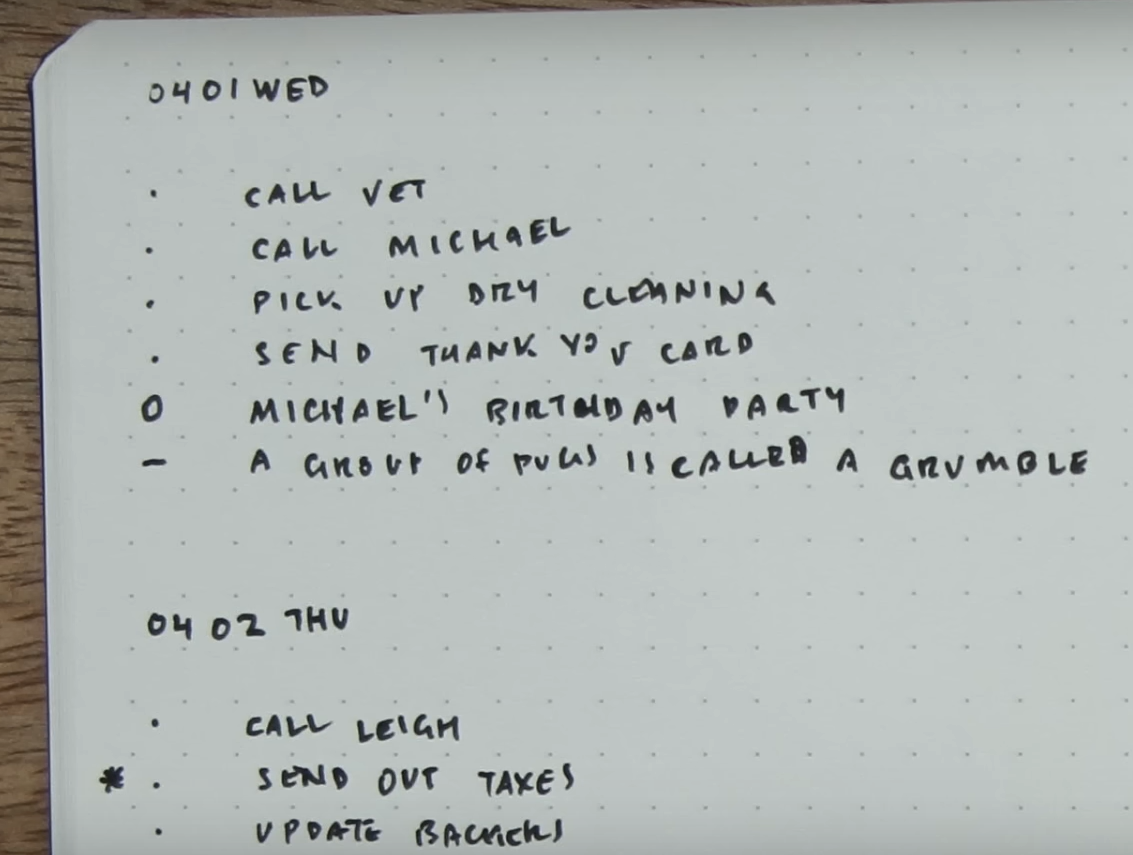 0401 WED
· CALL VET
· CALL MICHAEL
· PICK UP DRY CLEANING
· SEND THANK YOU CARD
O MICHAEL'S BIRTHDAY PARTY
– A GROUP OF PUGS IS CALLED A GRUMBLE
0402 THU
· CALL LEIGH
* · SEND OUT TAXES
· UPDATE